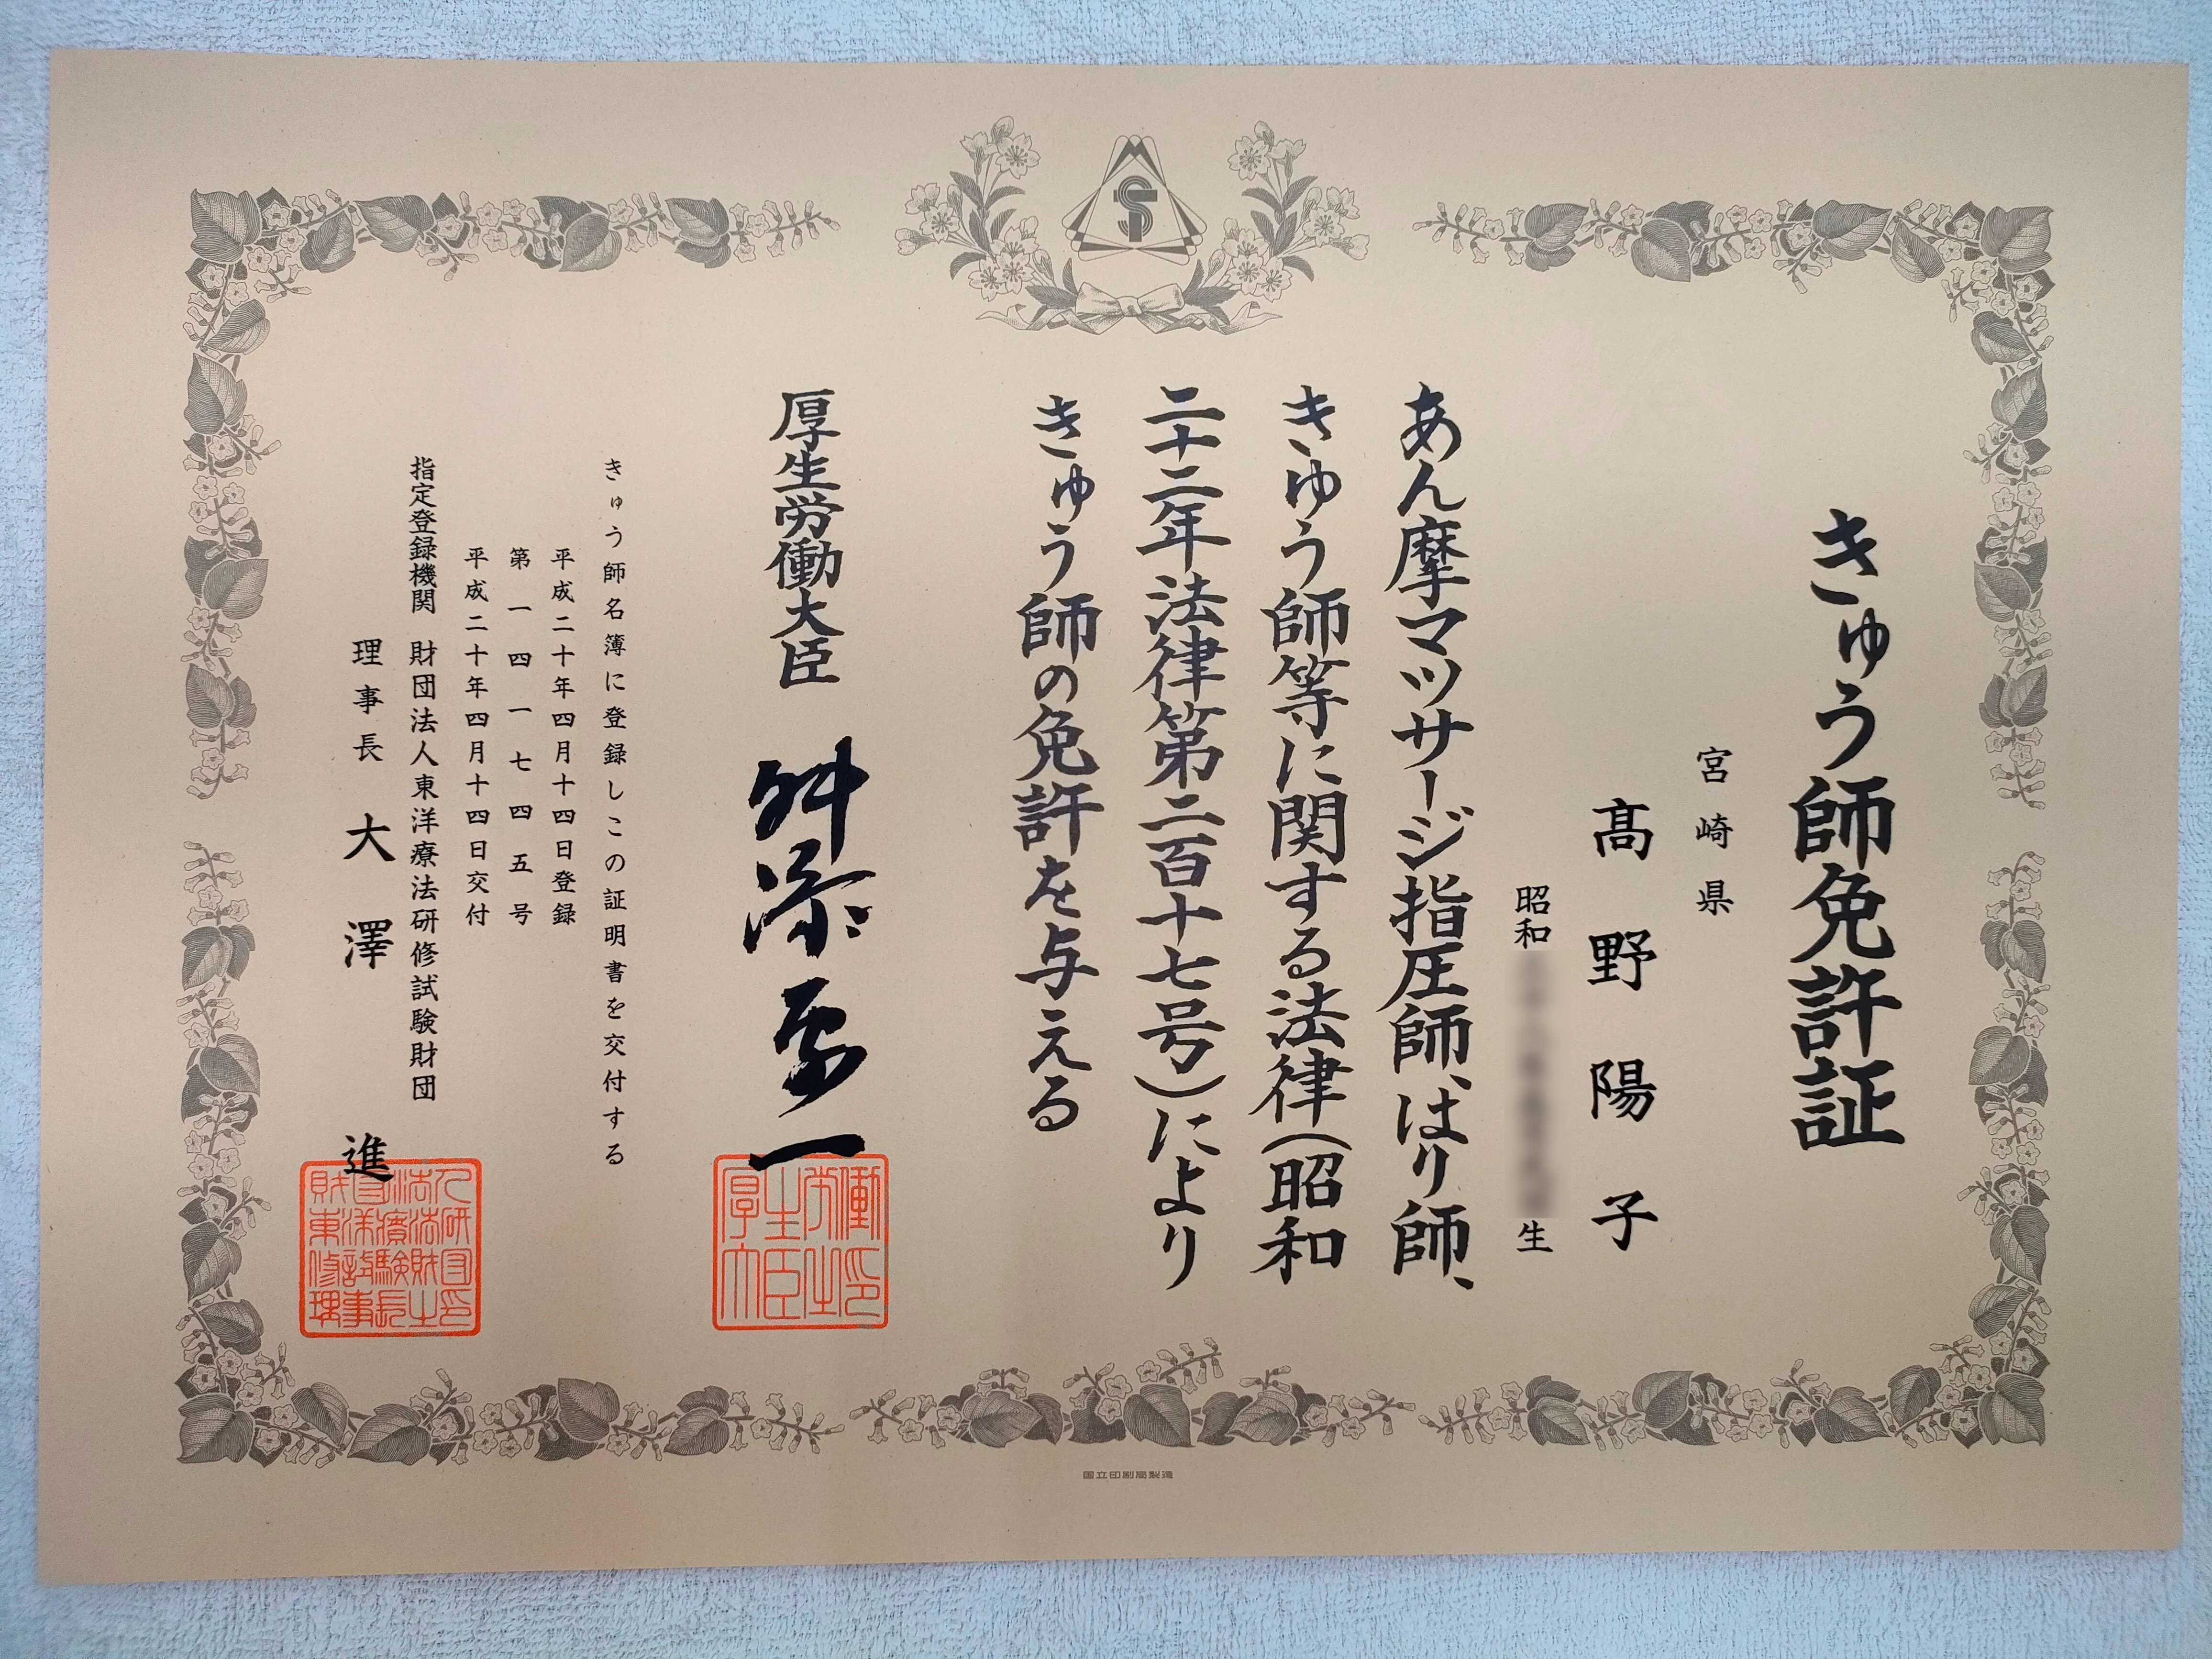 きゅう師免許証
宮崎県
髙野陽子
昭和
生
あん摩マツサージ指圧師、はり師、
きゆう師等に関する法律（昭和
二十二年法律第二百十七号）により
きゅう師の免許を与える
厚生労働大臣 舛添要一
きゅう師名簿に登録しこの証明書を交付する
平成二十年四月十四日登録
第一四一七四五号
平成二十年四月十四日交付
指定登録機関 財団法人東洋療法研修試験財団
理事長 大澤 進
国立印刷局製造